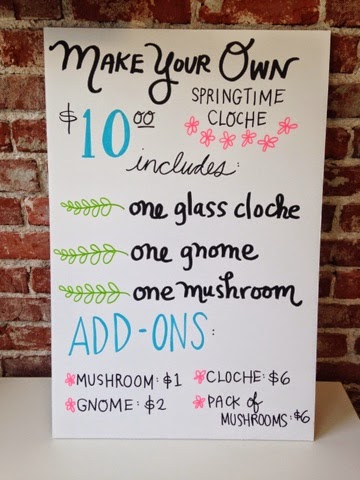 Make Your Own
SPRINGTIME
$10.00 CLOCHE
includes:
one glass cloche
one gnome
one mushroom
ADD-ONS:
MUSHROOM: $1 CLOCHE: $6
GNOME: $2 PACK of
MUSHROOMS: $6